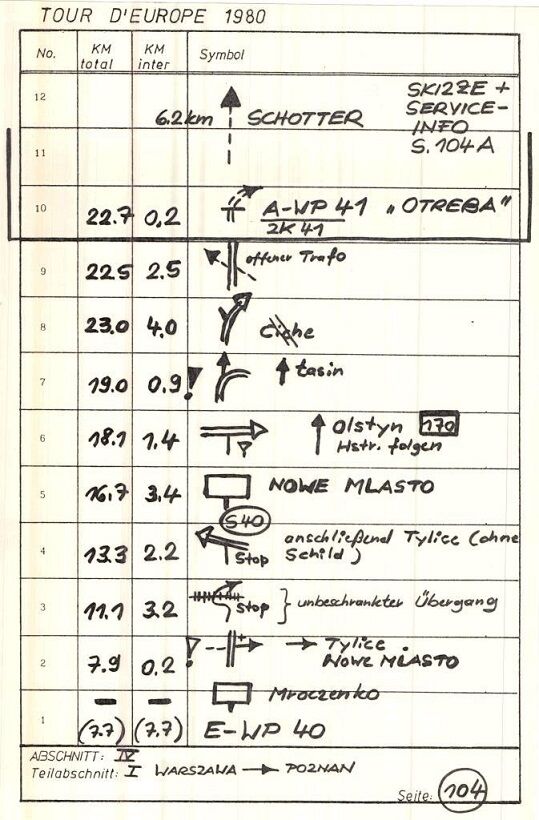 TOUR D'EUROPE 1980
No. KM total KM inter Symbol
12 6.2km SCHOTTER SKIZZE + SERVICE-INFO S. 104A
11
10 22.7 0,2 A-WP 41 „OTREBA"
ZK 41
9 22.5 2.5 offener Trafo
8 23.0 4.0 Ciche
7 19.0 0.9 ! Łasin
6 18.1 1.4 Olstyn 170
Hstr. folgen
5 16.7 3.4 NOWE MLASTO
S40
4 13.3 2.2 Stop anschließend Tylice (ohne Schild)
3 11.1 3.2 Stop } unbeschrankter Übergang
2 7.9 0.2 ! + → Tylice
NOWE MLASTO
Mroczenko
1 (7.7) (7.7) E-WP 40
ABSCHNITT: IV
Teilabschnitt: I WARSZAWA → POZNAN
Seite: 104